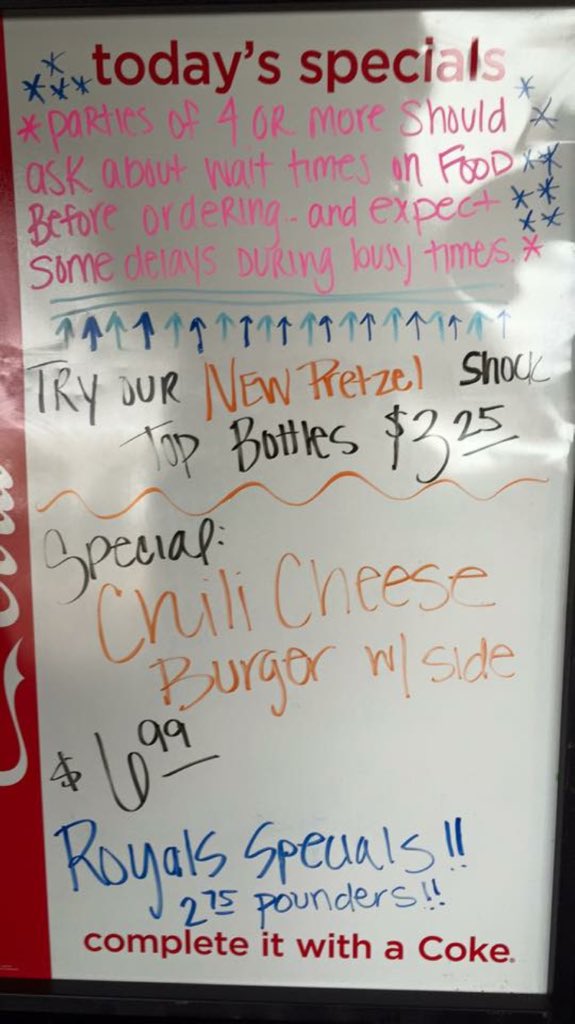 today's specials
*parties of 4 OR more Should
ask about wait times on FOOD
Before ordering.. and expect
some delays DURING busy times.*
TRY OUR NEW Pretzel Shock
Top Bottles $3.25
Special:
Chili Cheese
Burger w/ side
$6.99
Royals Specials!!
2.75 pounders!!
complete it with a Coke.